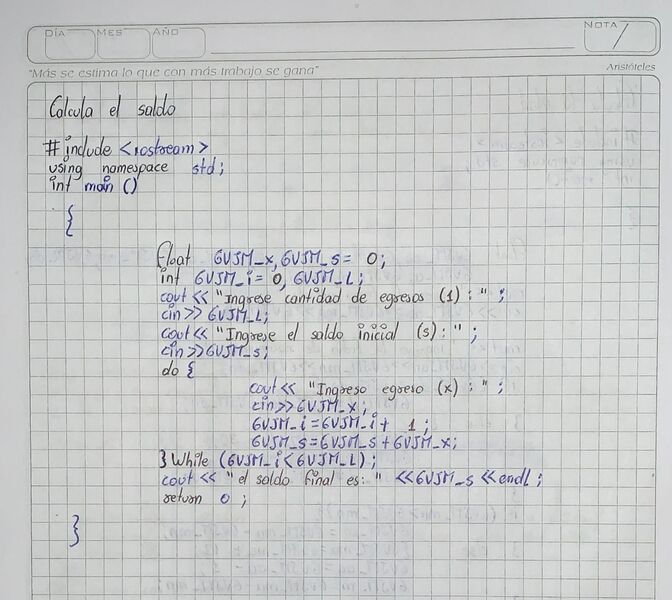 DÍA MES AÑO NOTA
"Más se estima lo que con más trabajo se gana" Aristóteles
Calcula el saldo
# include <iostream>
using namespace std;
int main ()
{
float GVJM_x, GVJM_s = 0;
int GVJM_i = 0, GVJM_L;
cout << "Ingrese cantidad de egresos (1) : " ;
cin >> GVJM_L;
cout << "Ingrese el saldo inicial (s) : " ;
cin >> GVJM_s;
do {
cout << "Ingreso egreso (x) : " ;
cin >> GVJM_x;
GVJM_i = GVJM_i + 1 ;
GVJM_s = GVJM_s + GVJM_x;
} While (GVJM_i < GVJM_L) ;
cout << " el saldo final es: " << GVJM_s << endl ;
return 0 ;
}